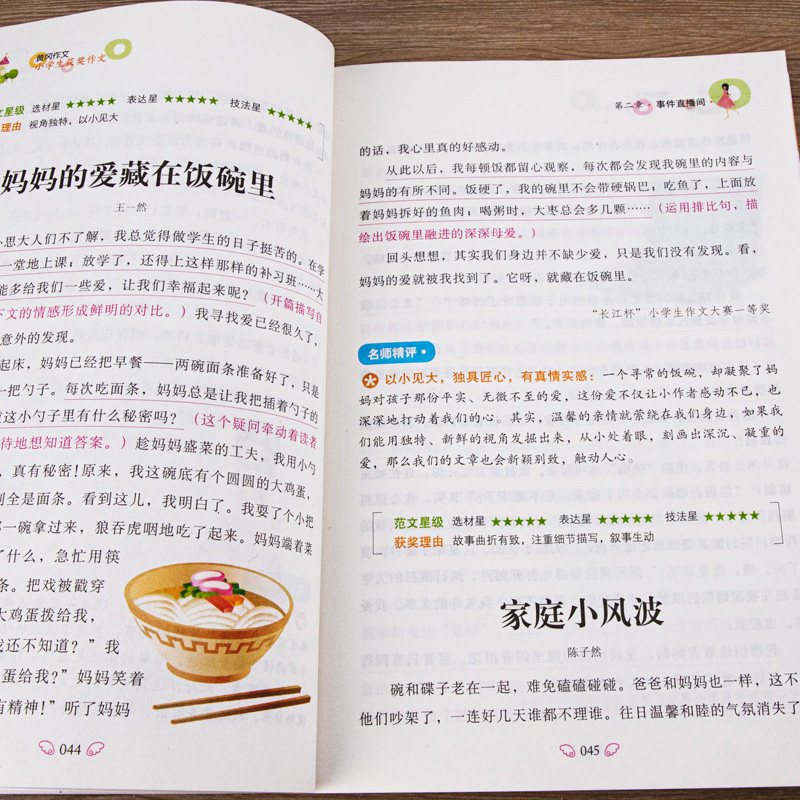 黄冈作文
小学生获奖作文
文星级 选材星 ★★★★★ 表达星 ★★★★★ 技法星 ★★★★★
理由 视角独特，以小见大
妈妈的爱藏在饭碗里
王一然
小思大人们不了解，我总觉得做学生的日子挺苦的。在学
一堂地上课；放学了，还得上这样那样的补习班……大
能多给我们一些爱，让我们幸福起来呢？（开篇描写自
下文的情感形成鲜明的对比。）我寻找爱已经很久了，
意外的发现。
起床，妈妈已经把早餐——两碗面条准备好了，只是
一把勺子。每次吃面条，妈妈总是让我把插着勺子的
道这小勺子里有什么秘密吗？（这个疑问牵动着读者
待地想知道答案。）趁妈妈盛菜的工夫，我用小勺
，真有秘密！原来，我这碗底有个圆圆的大鸡蛋，
则全是面条。看到这儿，我明白了。我耍了个小把
那一碗拿过来，狼吞虎咽地吃了起来。妈妈端着菜
了什么，急忙用筷
条。把戏被戳穿
大鸡蛋拨给我，
我还不知道？”我
蛋给我？”妈妈笑着
有精神！”听了妈妈
044
第二章·事件直播间
的话，我心里真的好感动。
从此以后，我每顿饭都留心观察，每次都会发现我碗里的内容与
妈妈的有所不同。饭硬了，我的碗里不会带硬锅巴；吃鱼了，上面放
着妈妈拆好的鱼肉；喝粥时，大枣总会多几颗……（运用排比句，描
绘出饭碗里融进的深深母爱。）
回头想想，其实我们身边并不缺少爱，只是我们没有发现。看，
妈妈的爱就被我找到了。它呀，就藏在饭碗里。
“长江杯”小学生作文大赛一等奖
名师精评
以小见大，独具匠心，有真情实感：一个寻常的饭碗，却凝聚了妈
妈对孩子那份平实、无微不至的爱，这份爱不仅让小作者感动不已，也
深深地打动着我们的心。其实，温馨的亲情就萦绕在我们身边，如果我
们能用独特、新鲜的视角发掘出来，从小处着眼，刻画出深沉、凝重的
爱，那么我们的文章也会新颖别致，触动人心。
范文星级 选材星 ★★★★★ 表达星 ★★★★★ 技法星 ★★★★★
获奖理由 故事曲折有致，注重细节描写，叙事生动
家庭小风波
陈子然
碗和碟子老在一起，难免磕磕碰碰。爸爸和妈妈也一样，这不
他们吵架了，一连好几天谁都不理谁。往日温馨和睦的气氛消失了
045